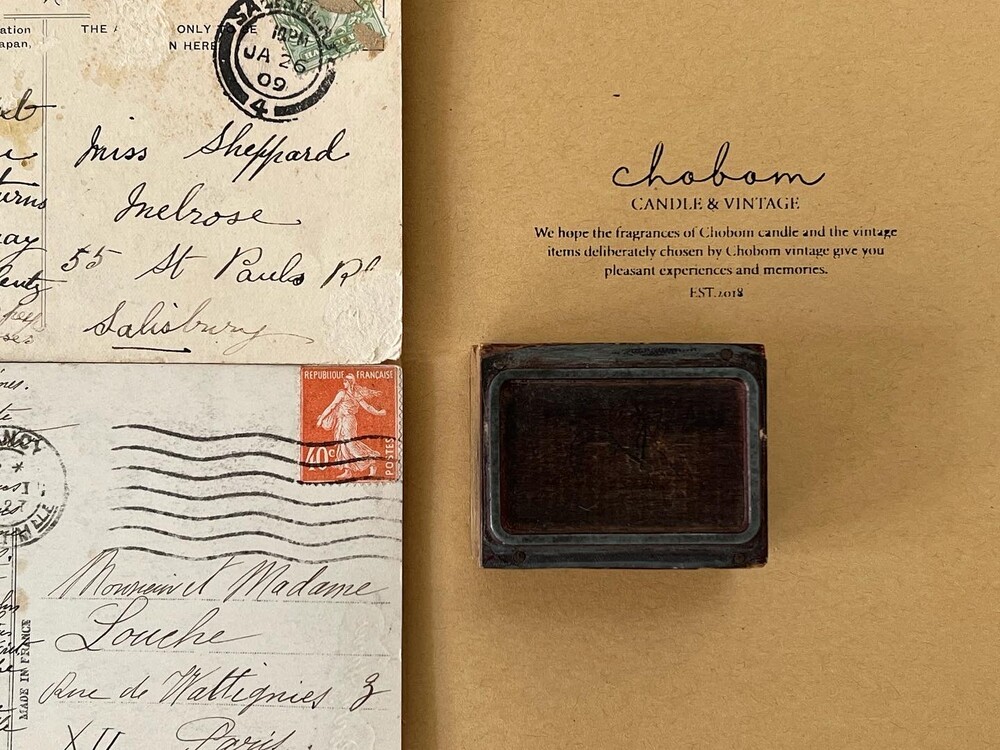 ation
apan,
THE A
ONLY TO BE
N HERE
JA 26
09
4
Miss Sheppard
Melrose
55 St Pauls Rd
Salisbury
REPUBLIQUE FRANÇAISE
40c
POSTES
Monsieur et Madame
Louche
Rue de Wattignies 3
XII Paris.
MADE IN FRANCE
chobom
CANDLE & VINTAGE
We hope the fragrances of Chobom candle and the vintage
items deliberately chosen by Chobom vintage give you
pleasant experiences and memories.
EST.2018